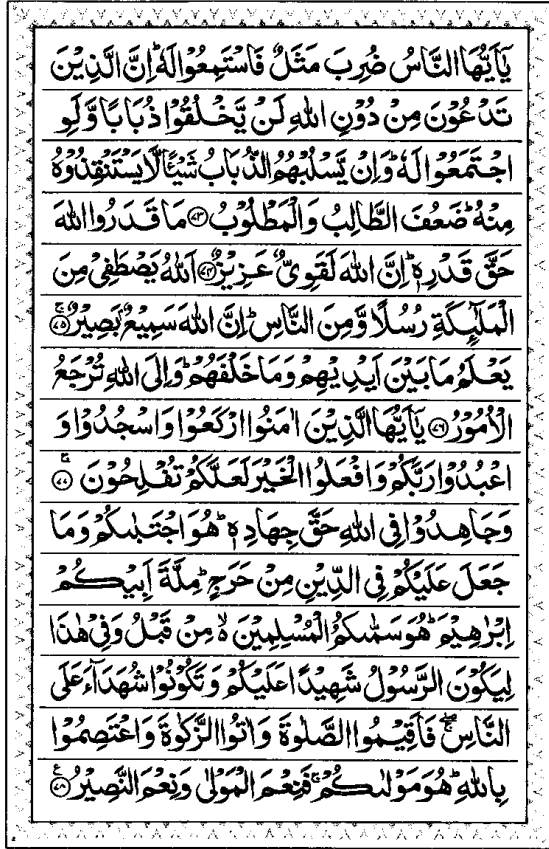 يٰٓاَيُّهَا النَّاسُ ضُرِبَ مَثَلٌ فَاسْتَمِعُوْا لَهٗ ؕ اِنَّ الَّذِيْنَ
تَدْعُوْنَ مِنْ دُوْنِ اللّٰهِ لَنْ يَّخْلُقُوْا ذُبَابًا وَّلَوِ
اجْتَمَعُوْا لَهٗ ؕ وَاِنْ يَّسْلُبْهُمُ الذُّبَابُ شَيْـًٔا لَّا يَسْتَنْقِذُوْهُ
مِنْهُ ؕ ضَعُفَ الطَّالِبُ وَالْمَطْلُوْبُ ۝۷۳ مَا قَدَرُوا اللّٰهَ
حَقَّ قَدْرِهٖ ؕ اِنَّ اللّٰهَ لَقَوِىٌّ عَزِيْزٌ ۝۷۴ اَللّٰهُ يَصْطَفِىْ مِنَ
الْمَلٰٓئِكَةِ رُسُلًا وَّمِنَ النَّاسِ ؕ اِنَّ اللّٰهَ سَمِيْعٌۢ بَصِيْرٌ ۝۷۵ ۚ
يَعْلَمُ مَا بَيْنَ اَيْدِيْهِمْ وَمَا خَلْفَهُمْ ؕ وَاِلَى اللّٰهِ تُرْجَعُ
الْاُمُوْرُ ۝۷۶ يٰٓاَيُّهَا الَّذِيْنَ اٰمَنُوا ارْكَعُوْا وَاسْجُدُوْا وَ
اعْبُدُوْا رَبَّكُمْ وَافْعَلُوا الْخَيْرَ لَعَلَّكُمْ تُفْلِحُوْنَ ۝۷۷ ۚ
وَجَاهِدُوْا فِى اللّٰهِ حَقَّ جِهَادِهٖ ؕ هُوَ اجْتَبٰىكُمْ وَمَا
جَعَلَ عَلَيْكُمْ فِى الدِّيْنِ مِنْ حَرَجٍ ؕ مِلَّةَ اَبِيْكُمْ
اِبْرٰهِيْمَ ؕ هُوَ سَمّٰىكُمُ الْمُسْلِمِيْنَ ۙ مِنْ قَبْلُ وَفِىْ هٰذَا
لِيَكُوْنَ الرَّسُوْلُ شَهِيْدًا عَلَيْكُمْ وَتَكُوْنُوْا شُهَدَآءَ عَلَى
النَّاسِ ۖۚ فَاَقِيْمُوا الصَّلٰوةَ وَاٰتُوا الزَّكٰوةَ وَاعْتَصِمُوْا
بِاللّٰهِ ؕ هُوَ مَوْلٰىكُمْ ۚ فَنِعْمَ الْمَوْلٰى وَنِعْمَ النَّصِيْرُ ۝۷۸ ع